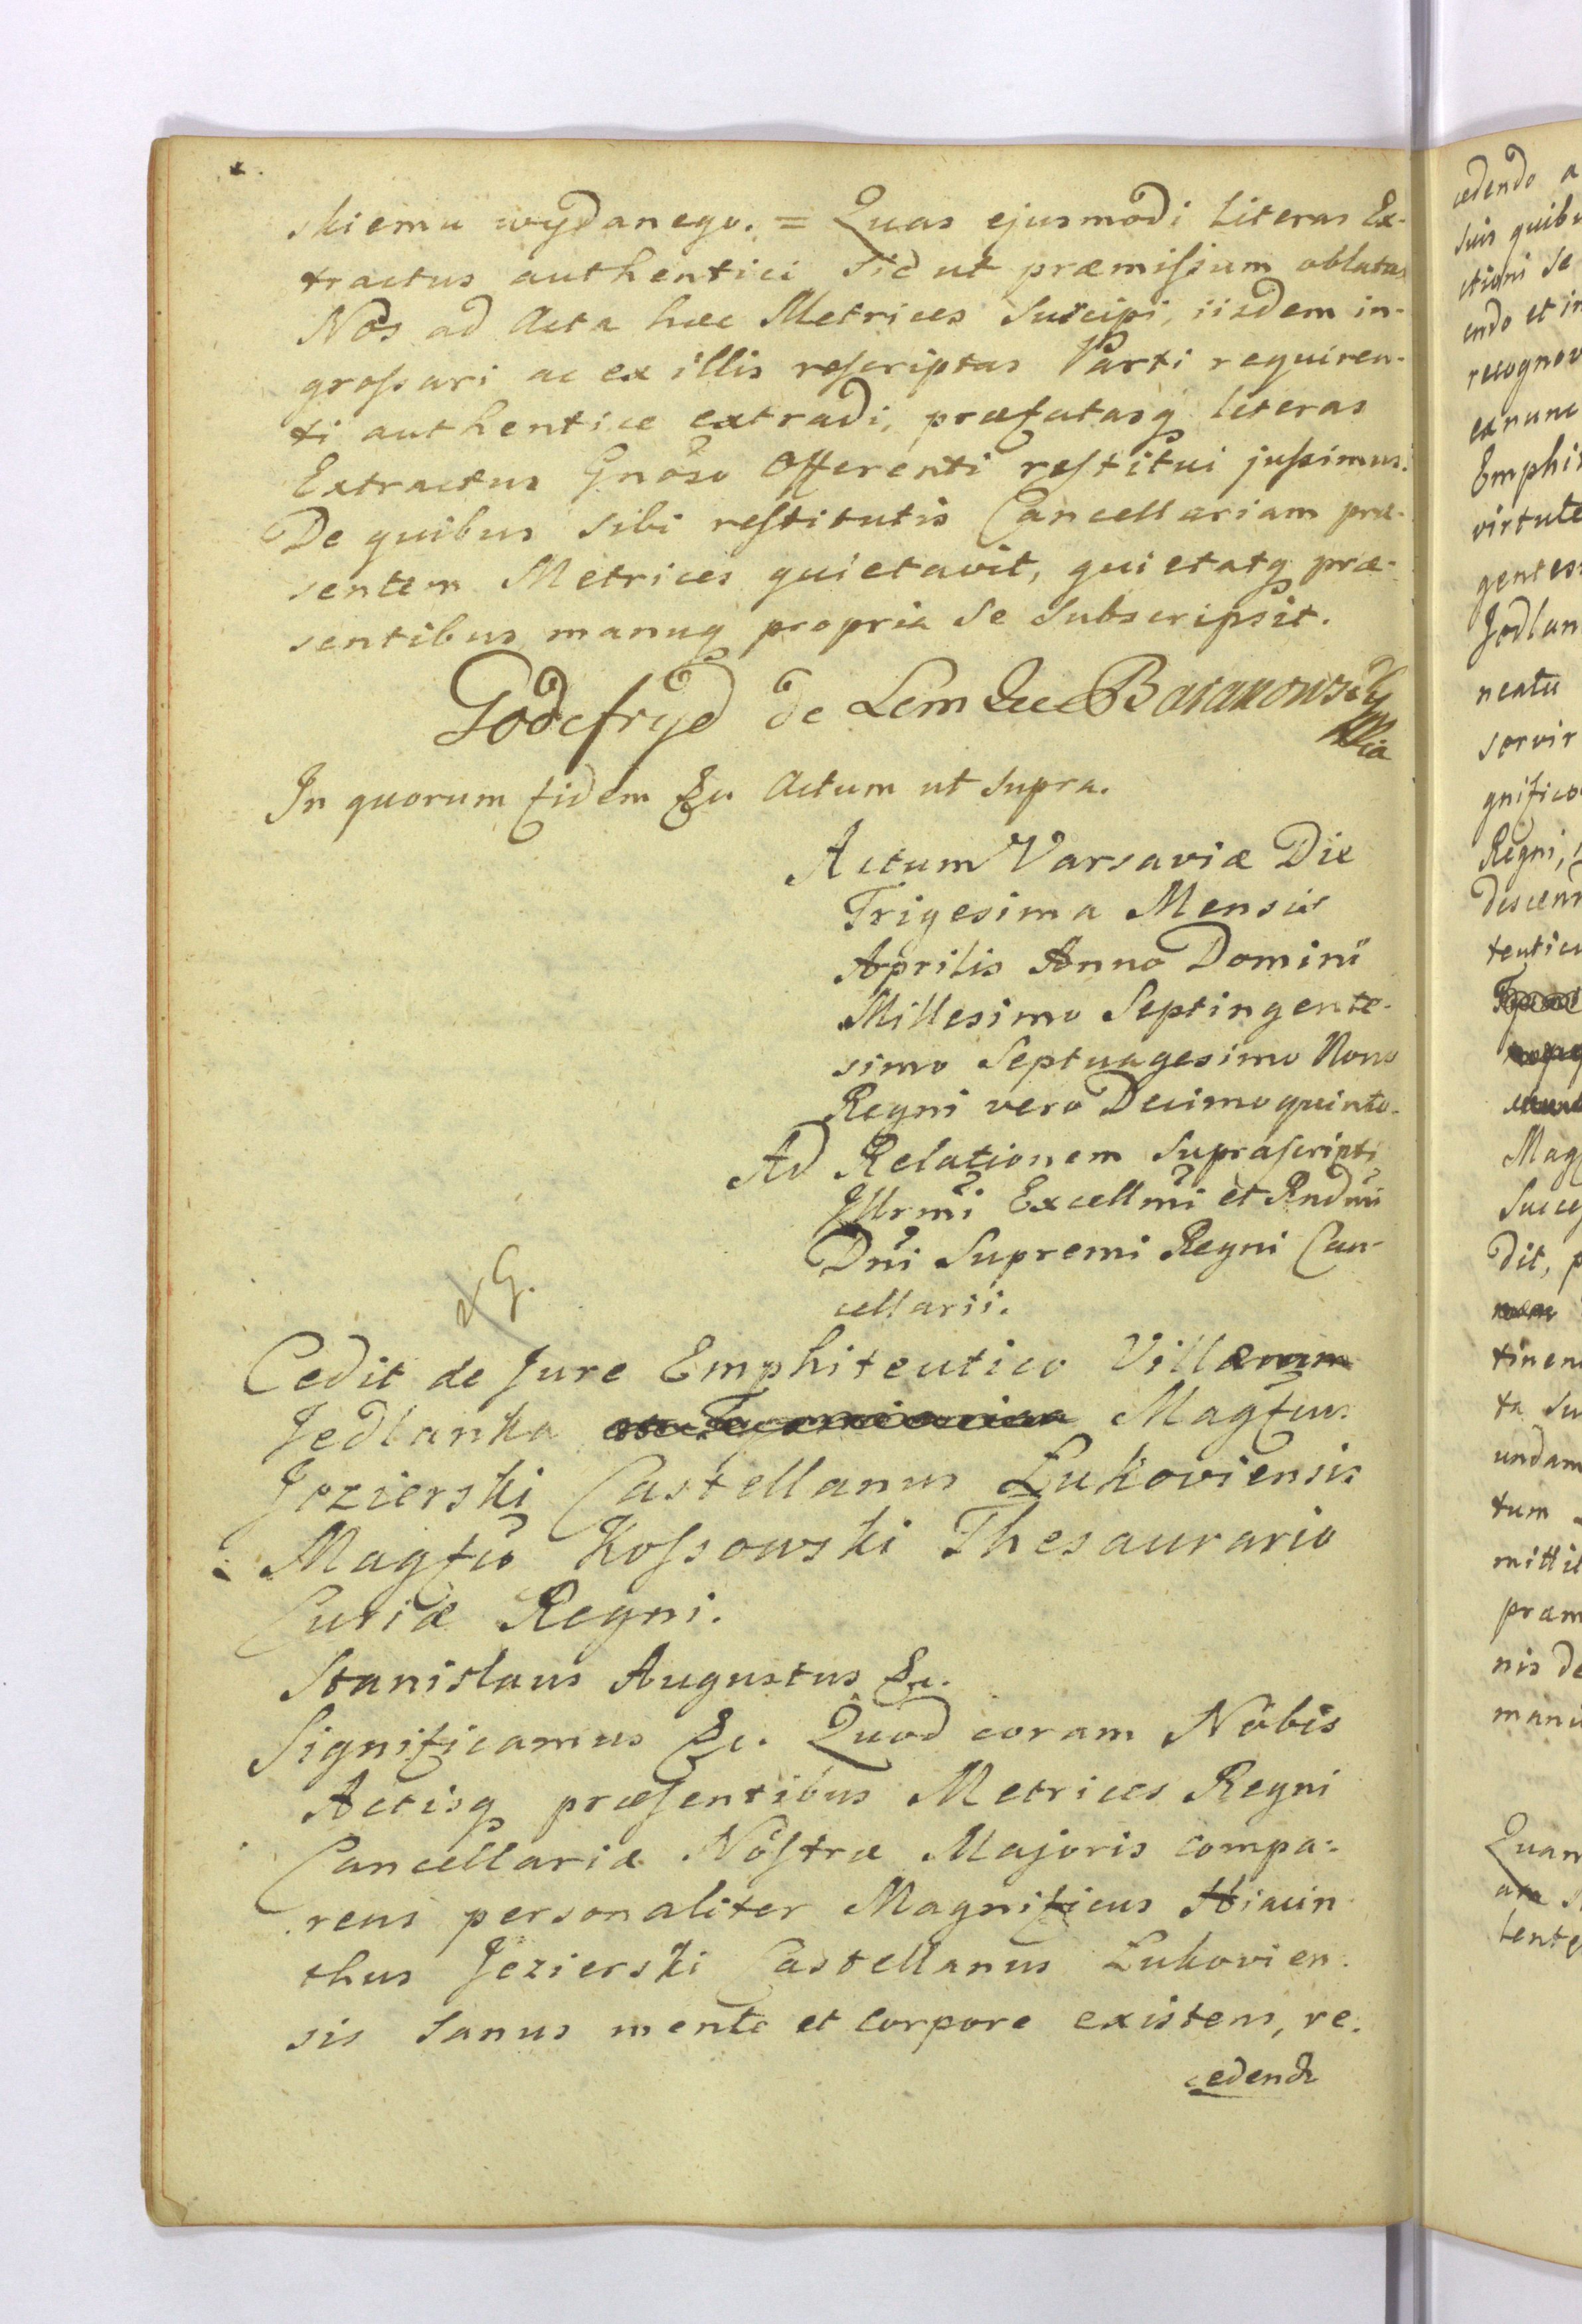 skiemu wydanego. = Quas ejusmodi literas Ex-
tractus authentici sic ut præmissum oblatas
Nos ad Acta hæc Metrices suscipi, iisdem in-
grossari ac ex illis rescriptas Parti requiren-
ti authentice extradi, præfatasq literas
Extractus Gnoso Offerenti restitui jussimus.
De quibus sibi restitutis Cancellariam præ-
sentem Metrices quietavit, quietatq præ-
sentibus manuq propria se subscripsit.
Godefryd de Lemke Baranowski
In quorum fidem &c. Actum ut supra.
Actum Varsaviæ Die
Trigesima Mensis
Aprilis Anno Domini
Millesimo Septingente-
simo Septuagesimo Nono
Regni vero Decimoquinto.
Ad Relationem suprascripti
Illrmi Excellmi et Rndmi
Dni Supremi Regni Can-
cellarii.
G.
Cedit de Jure Emphiteutico Villæ
Jedlanka Magfus
Jezierski Castellanus Łukoviensis
Magfco Kossowski Thesaurario
Curiæ Regni.
Stanislaus Augustus &c.
Significamus &c. Quod coram Nobis
Actisq præsentibus Metrices Regni
Cancellariæ Nostræ Majoris compa-
rens personaliter Magnificus Hiacin
thus Jezierski Castellanus Łukovien-
sis sanus mente et corpore existens, re-
cedendo
cedendo a
suis quibu
ctioni se
endo et in
recognov
exnunc
Emphit
virtute
gentes
Jedlan
neatu
servir
gnifico
Regni,
descend
teutic
Mag
Succe
dit, p
tinen
ta su
undam
tum
mittit
præm
nis de
manu
Quam